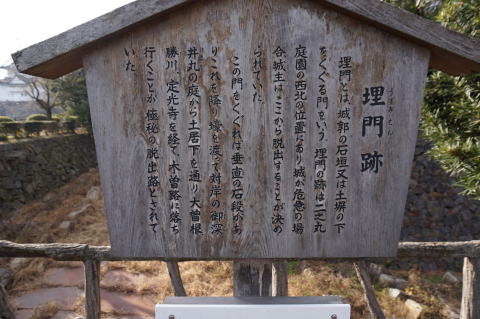 埋門跡
うずみもん
埋門とは、城郭の石垣又は土塀の下
をくぐる門をいう。埋門の跡は二之丸
庭園の西北の位置にあり城が危急の場
合、城主はここから脱出することが決め
られていた。
この門をくぐれば垂直の石段があ
りこれを降り濠を渡って対岸の御深
井丸の庭から土居下を通り大曽根
勝川、定光寺を経て、木曽路に落ち
行くことが極秘の脱出路とされて
いた